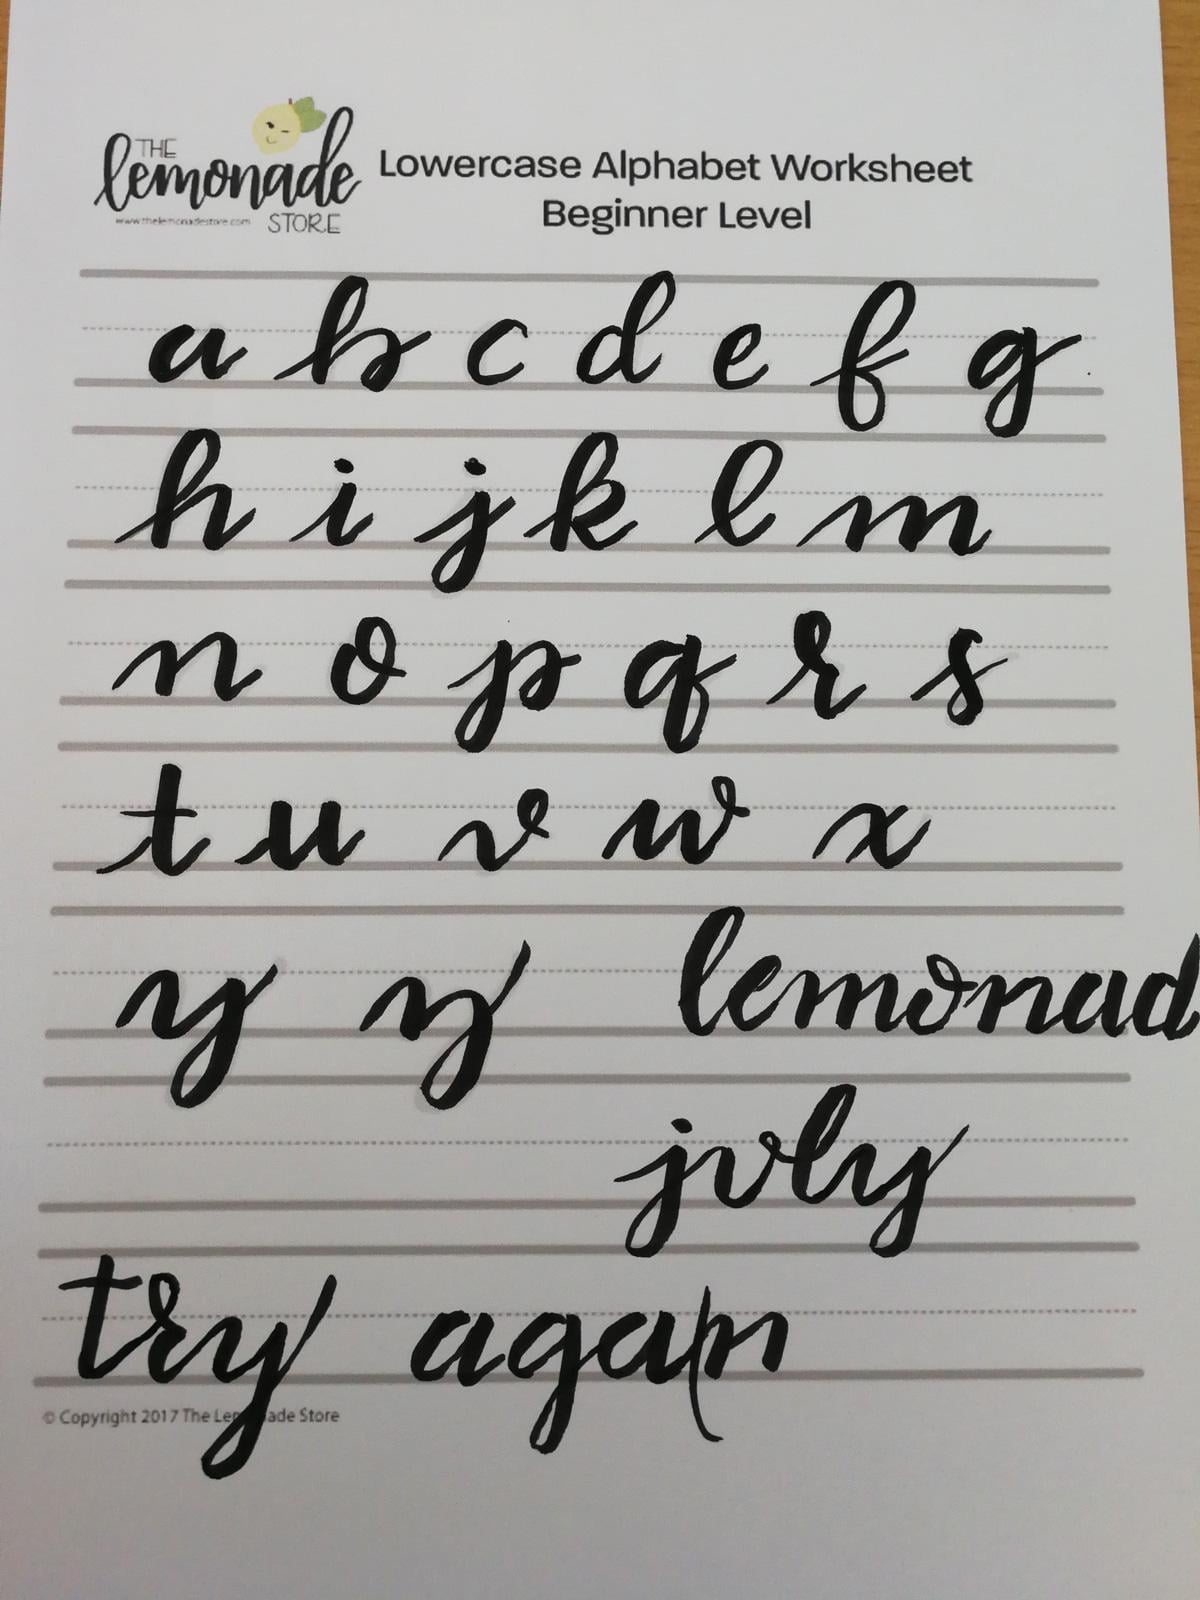 THE
lemonade
www.thelemonadestore.com STORE
Lowercase Alphabet Worksheet
Beginner Level
a b c d e f g
h i j k l m
n o p q r s
t u v w x
y z lemonad
july
try again
© Copyright 2017 The Lemonade Store